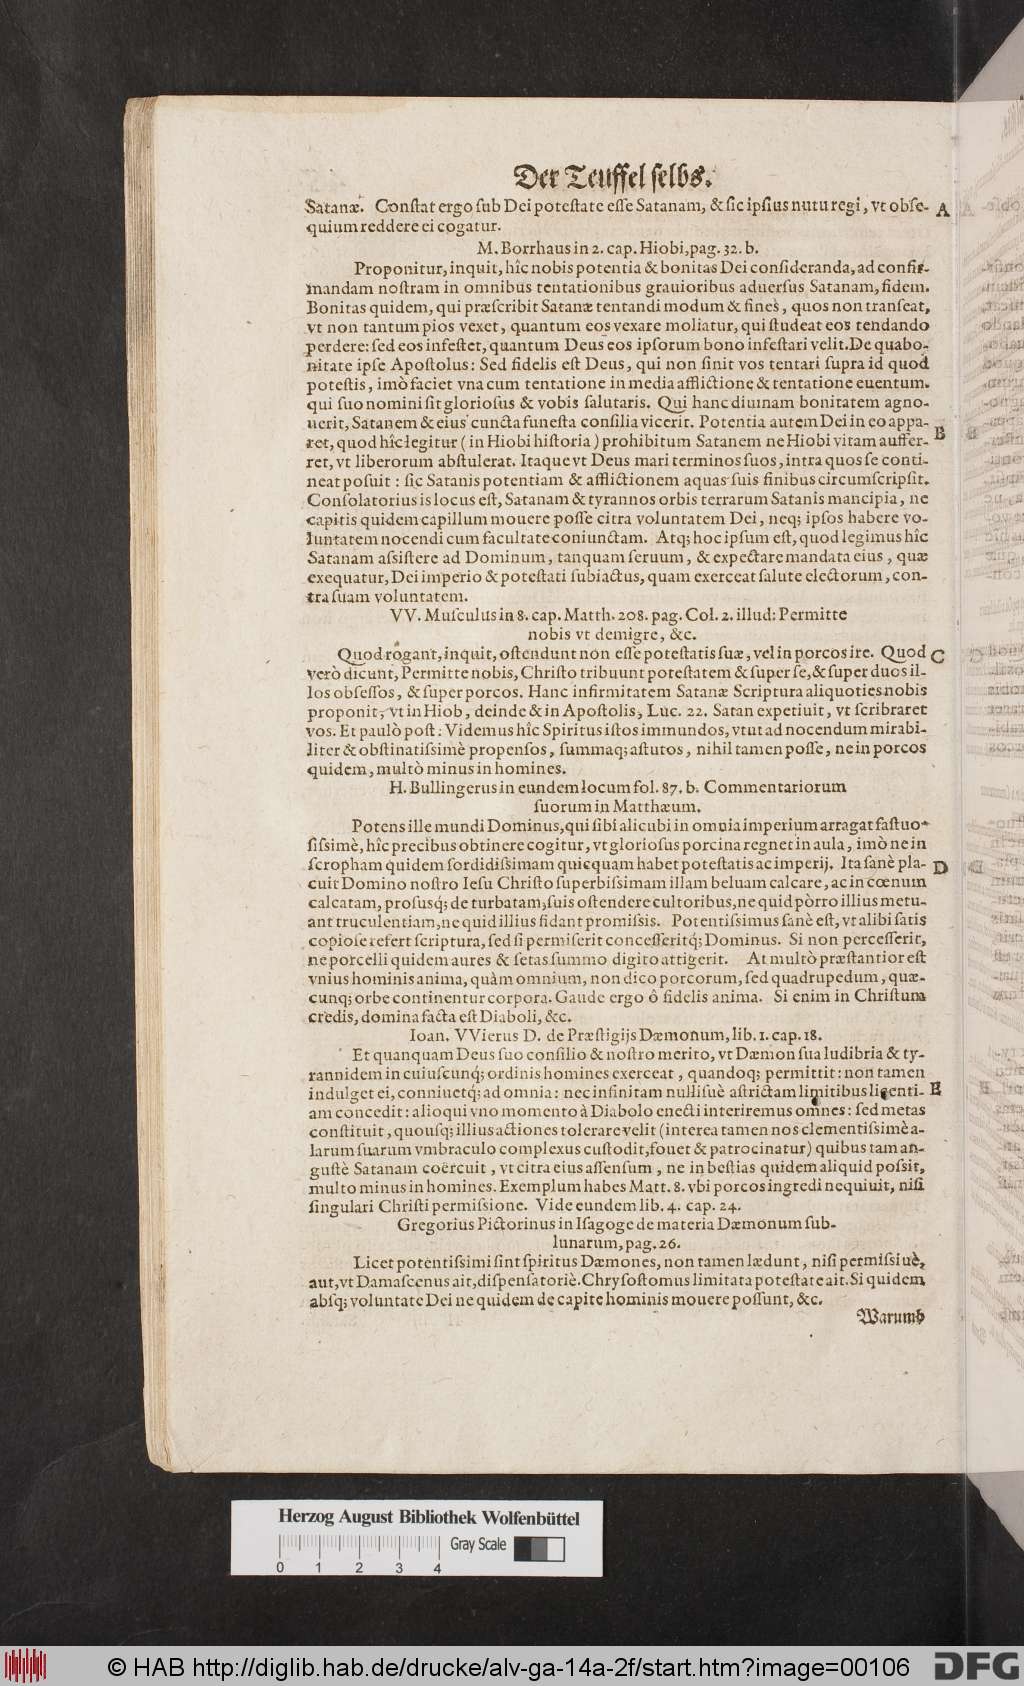 Der Teuffel selbs.
Satanæ. Constat ergo sub Dei potestate esse Satanam, & sic ipsius nutu regi, vt obse- A
quium reddere ei cogatur.
M. Borrhaus in 2. cap. Hiobi, pag. 32. b.
Proponitur, inquit, hîc nobis potentia & bonitas Dei consideranda, ad confir-
mandam nostram in omnibus tentationibus grauioribus aduersus Satanam, fidem.
Bonitas quidem, qui præscribit Satanæ tentandi modum & fines, quos non transeat,
vt non tantum pios vexet, quantum eos vexare moliatur, qui studeat eos tendando
perdere: sed eos infestet, quantum Deus eos ipsorum bono infestari velit. De qua bo-
nitate ipse Apostolus: Sed fidelis est Deus, qui non sinit vos tentari supra id quod
potestis, imò faciet vna cum tentatione in media afflictione & tentatione euentum.
qui suo nomini sit gloriosus & vobis salutaris. Qui hanc diuinam bonitatem agno-
uerit, Satanem & eius cuncta funesta consilia vicerit. Potentia autem Dei in eo appa-
ret, quod hîc legitur (in Hiobi historia) prohibitum Satanem ne Hiobi vitam auffer- B
ret, vt liberorum abstulerat. Itaque vt Deus mari terminos suos, intra quos se conti-
neat posuit: sic Satanis potentiam & afflictionem aquas suis finibus circumscripsit.
Consolatorius is locus est, Satanam & tyrannos orbis terrarum Satanis mancipia, ne
capitis quidem capillum mouere posse citra voluntatem Dei, neq; ipsos habere vo-
luntatem nocendi cum facultate coniunctam. Atq; hoc ipsum est, quod legimus hîc
Satanam assistere ad Dominum, tanquam seruum, & expectare mandata eius, quæ
exequatur, Dei imperio & potestati subiactus, quam exerceat salute electorum, con-
tra suam voluntatem.
VV. Musculus in 8. cap. Matth. 208. pag. Col. 2. illud: Permitte
nobis vt demigre, &c.
Quod rogant, inquit, ostendunt non esse potestatis suæ, vel in porcos ire. Quod C
verò dicunt, Permitte nobis, Christo tribuunt potestatem & super se, & super duos il-
los obsessos, & super porcos. Hanc infirmitatem Satanæ Scriptura aliquoties nobis
proponit, vt in Hiob, deinde & in Apostolis, Luc. 22. Satan expetiuit, vt scribraret
vos. Et paulò post: Videmus hîc Spiritus istos immundos, vtut ad nocendum mirabi-
liter & obstinatissimè propensos, summaq; astutos, nihil tamen posse, ne in porcos
quidem, multò minus in homines.
H. Bullingerus in eundem locum fol. 87. b. Commentariorum
suorum in Matthæum.
Potens ille mundi Dominus, qui sibi alicubi in omnia imperium arragat fastuo-
sissimè, hîc precibus obtinere cogitur, vt gloriosus porcina regnet in aula, imò ne in
scropham quidem sordidissimam quicquam habet potestatis ac imperij. Ita sanè pla- D
cuit Domino nostro Iesu Christo superbissimam illam beluam calcare, ac in cœnum
calcatam, prosusq; de turbatam, suis ostendere cultoribus, ne quid pòrro illius metu-
ant truculentiam, ne quid illius fidant promissis. Potentissimus sanè est, vt alibi satis
copiose refert scriptura, sed si permiserit concesseritq; Dominus. Si non percesserit,
ne porcelli quidem aures & setas summo digito attigerit. At multò præstantior est
vnius hominis anima, quàm omnium, non dico porcorum, sed quadrupedum, quæ-
cunq; orbe continentur corpora. Gaude ergo ô fidelis anima. Si enim in Christum
credis, domina facta est Diaboli, &c.
Ioan. VVierus D. de Præstigijs Dæmonum, lib. 1. cap. 18.
Et quanquam Deus suo consilio & nostro merito, vt Dæmon sua ludibria & ty-
rannidem in cuiuscunq; ordinis homines exerceat, quandoq; permittit: non tamen
indulget ei, conniuetq; ad omnia: nec infinitam nullisuè astrictam limitibus licenti- E
am concedit: alioqui vno momento à Diabolo enecti interiremus omnes: sed metas
constituit, quousq; illius actiones tolerare velit (interea tamen nos clementissimè a-
larum suarum vmbraculo complexus custodit, fouet & patrocinatur) quibus tam an-
gustè Satanam coërcuit, vt citra eius assensum, ne in bestias quidem aliquid possit,
multo minus in homines. Exemplum habes Matt. 8. vbi porcos ingredi nequiuit, nisi
singulari Christi permissione. Vide eundem lib. 4. cap. 24.
Gregorius Pictorinus in Isagoge de materia Dæmonum sub-
lunarum, pag. 26.
Licet potentissimi sint spiritus Dæmones, non tamen lædunt, nisi permissiuè,
aut, vt Damascenus ait, dispensatoriè. Chrysostomus limitata potestate ait. Si quidem
absq; voluntate Dei ne quidem de capite hominis mouere possunt, &c.
Warumb
Herzog August Bibliothek Wolfenbüttel
Gray Scale
0 1 2 3 4
© HAB http://diglib.hab.de/drucke/alv-ga-14a-2f/start.htm?image=00106
DFG